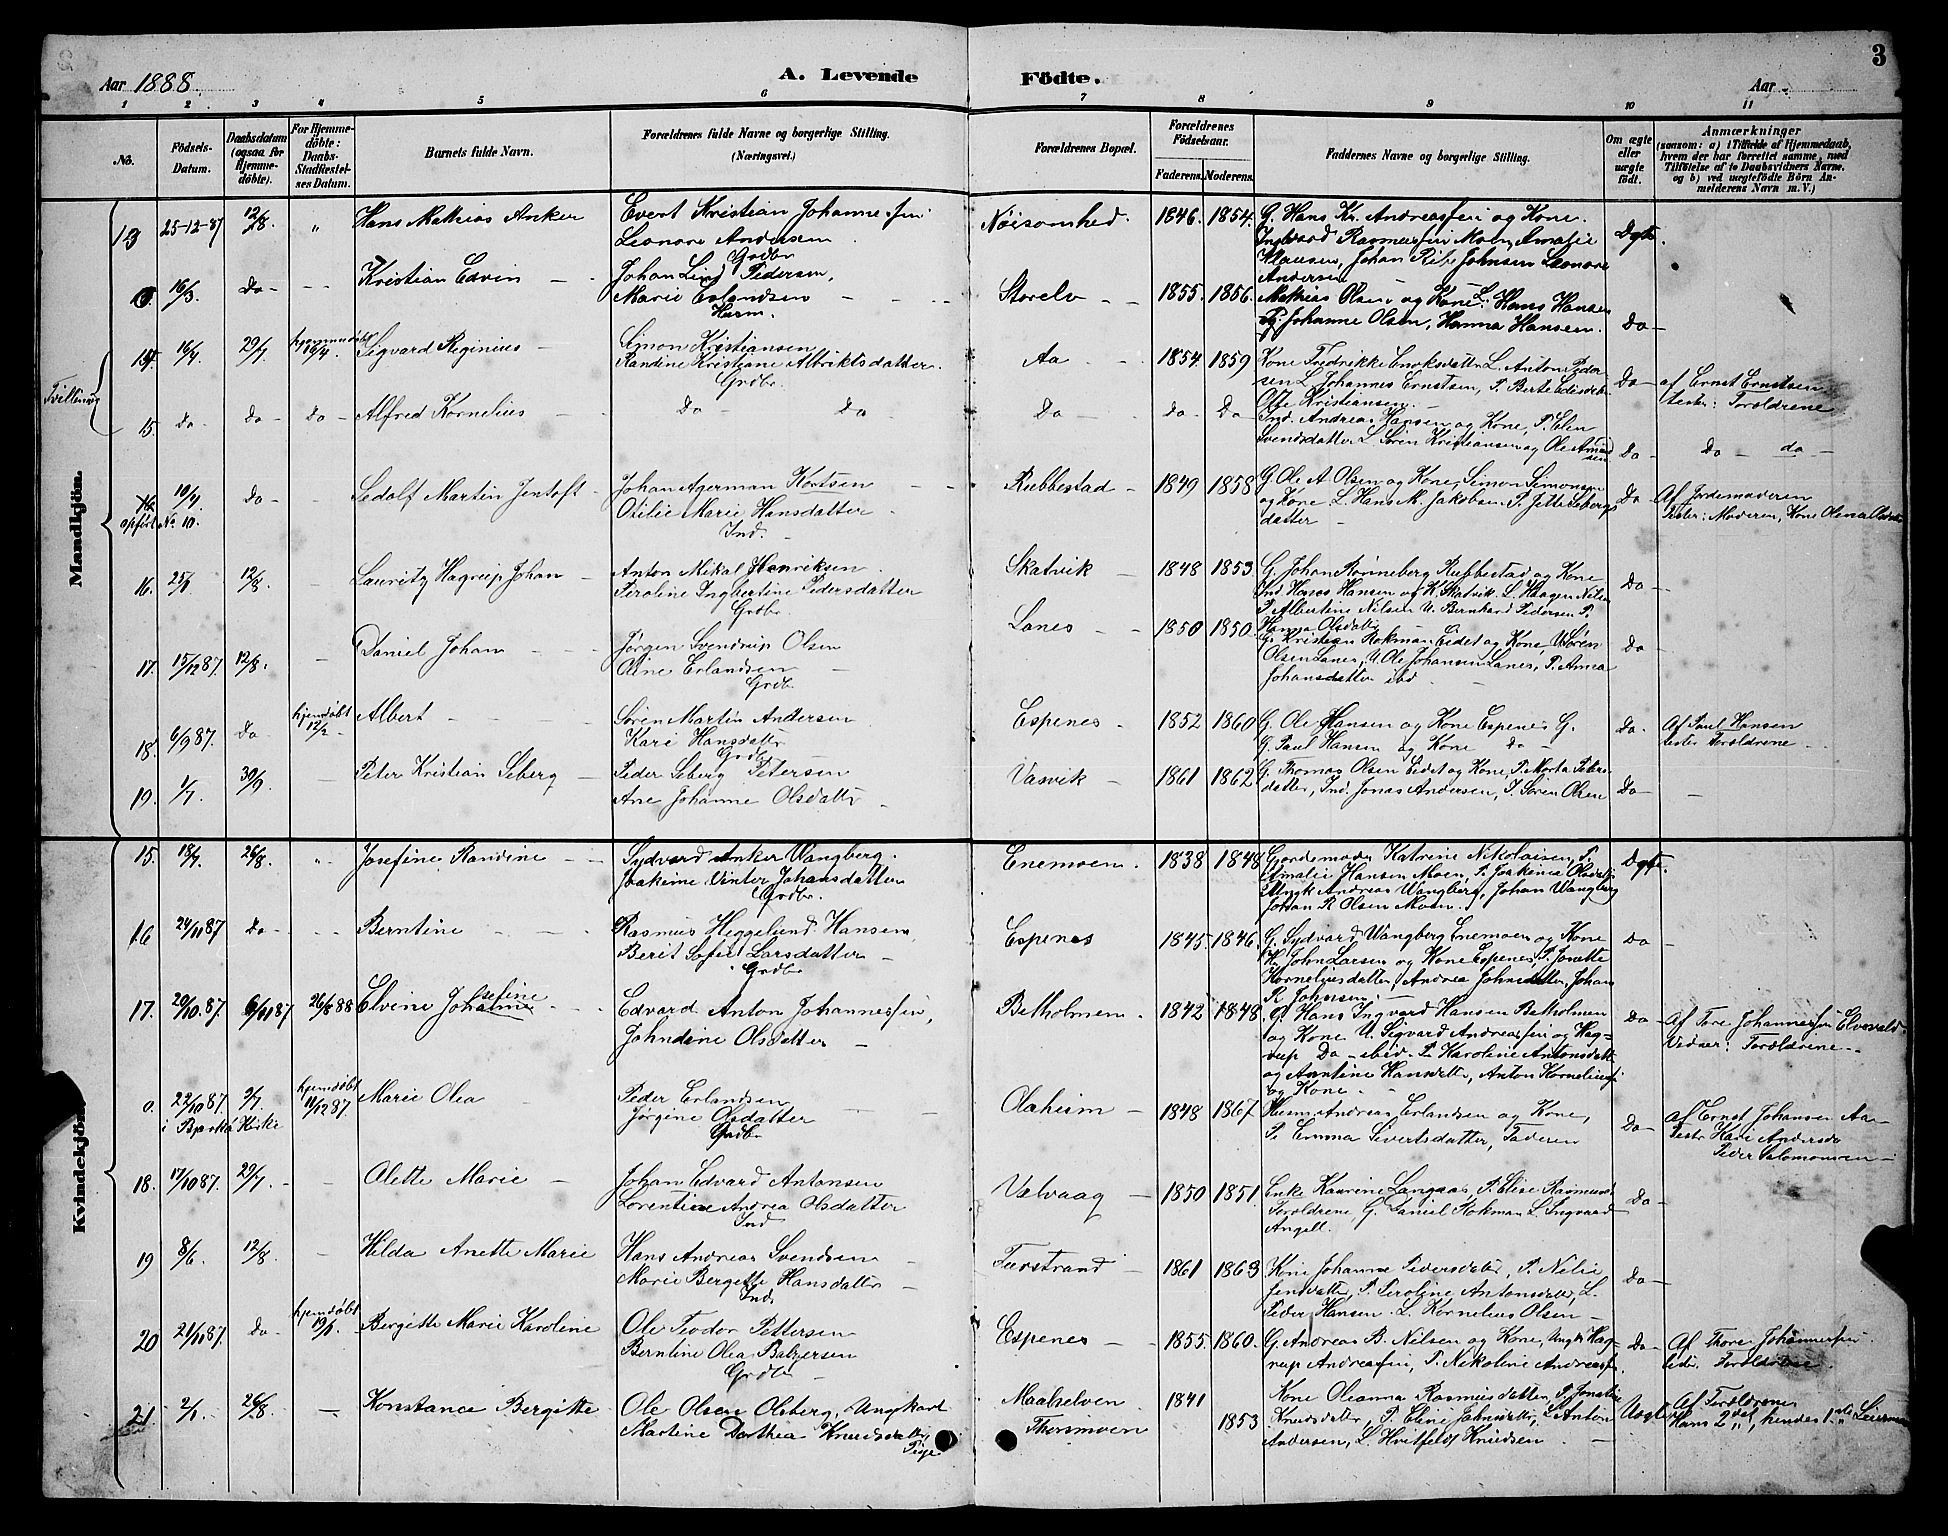 3
Aar 1888.
A. Levende Födte.
Aar
1 2. 3 4 5 6 7 8 9 10 11
No.
Födsels-Datum.
Daabsdatum (ogsaa for Hjemme-döbte).
For Hjemme-döbte: Daabs-Stadfæstel-ses Datum.
Barnets fulde Navn.
Forældrenes fulde Navne og borgerlige Stilling. (Næringsvei.)
Forældrenes Bopæl.
Forældrenes Födselsaar.
Faderens. Moderens.
Faddernes Navne og borgerlige Stilling.
Om ægte eller uægte födt.
Anmærkninger
(saasom: a) i Tilfælde af Hjemmedaab,
hvem der har forrettet samme, med
Tilföielse af to Daabsvidners Navne.
og b) ved uægtefödte Börn An-
melderens Navn m. V.)
Mandkjön.
13 25-12-87 12/8 " Hans Mathias Anker
Evert Kristian Johannesen
Leonore Andersen
Grdbr
Nöisomhed. 1846. 1854.
G. Hans Kr. Andreassen og Kone.
Ingvard Rasmussen Moen, Amalie
Klausen, Johan Johnsen Leonore
Andersen
Ægte.
16/3. Do - - - Kristian Edvin
Johan Lind Pedersen,
Marie Erlandsen
Husm.
Storelv - - 1855. 1856.
Mathias Olsen og Kone L. Hans Hansen
P. Johanne Olsen, Hanna Hansen.
Do -
Tvillinger
14. 16/4. 29/7 hjemmedøbt 16/4. Sigvard Reginius -
Simon Kristiansen
Randine Kristiane Albriktsdatter
Grdbr.
Aa - - 1854. 1859
Kone Fredrikke Enoksdatter L. Anton Peder
sen L. Johannes Ernstsen, P. Berte
Olfe Kristiansen -
Do -
af Ernst Ernstsen
Test: Forældrene
15. Do - Do - Do - Alfred Kornelius - Do Do
Do - Do - Do
Ind. Andreas Hansen og Kone, P. Elen
Svendsdatter L. Søren Kristiansen og Ole Amund
sen
Do Do - do -
10/4 Do - - Sedolf Martin Jentoft -
opført No 10.
Johan Agerman Kortsen
Otilie Marie Hansdatter
Ind. -
Rubbestad - 1849 1858
G. Ole A Olsen og Kone, Simon Simonsen
og Kone L. Hans M. Jakobsen P. Jette Sebergs
datter -
Do
Af Jordemoderen
Test: Moderen, Kone Olena
16. 25/1 12/8 - Lauritz Hagrup Johan -
Anton Mikal Henriksen
Peroline Ingbertine Pedersdatter
Grdbr.
Skatvik - 1848 1853
G Johan Rønneberg Rubbestad og Kone
Ind Hans Hansen og K. Skatvik. L. Haagen Nilsen
P. Albertine Nilsen U. Bernhard Pedersen P.
Hanna Olsdatter
Do -
17. 15/12 87. 12/8. - Daniel Johan - - -
Jørgen Svendrup Olsen
Oline Erlandsen
Grdb.
Lanes - - 1850 1850.
G. Kristian Rokman Eidet og Kone, U. Søren
Olsen Lanes, U. Ole Johansen Lanes, P. Anna
Johansdatter ibd -
Do -
18. 6/9 87. Do - hjemdøbt 12/2 - Albert - - -
Søren Martin Andersen
Kari Hansdatter
Grdbr
Espenes - 1852 1860
G. Ole Hansen og Kone Espenes G.
G. Paul Hansen og Kone Do -
Do -
Af Paul Hansen
test Forældrene -
19. 1/7. 30/9 - Peter Kristian Seberg -
Peder Seberg Petersen
Ane Johanne Olsdatter -
Vasvik - 1861 1862
G. Thomas Olsen Eidet og Kone, P. Marta Peters
datter, Ind. Jonas Andersen, P. Søren Olsen
Do - -
Kvindekjön.
15. 18/7. 26/8. " Josefine Randine - -
Sydvard Anker Wangberg.
Joakime Vinter Johansdatter
Grdbr.
Enemoen. 1838 1848
Gjordemoder Katrine Nikolaisen, P.
Amalie Hansen Moen, P. Joakima Olsdatter
Ungk Andreas Wangberg, Johan Wangberg
Johan R Olsen Moen.
Ægte.
16 24/11 87 Do - - - Berntine - - -
Rasmus Heggelund Hansen,
Berit Sofie Larsdatter -
Grdbr
Espenes 1845 1846.
G. Sydvard Wangberg Enemoen og Kone
H. John Larsen og Kone Espenes P. Jonette
Korneliusdatter, Andrea Johnsdatter, Johan
R Johnsen. -
Do -
17. 20/10 87. 6/11 87 26/8 88 Elvine Johanne Josefine - -
Edvard Anton Johannessen,
Johndine Olsdatter -
Betholmen - 1842 1848.
G. Hans Ingvard Hansen Betholmen
og Kone U. Sigvard Andreassen og Hag-
rup Do - ibid - P. Karoline Antonsdatter
og Antine Hansdatter, Anton Korneliussen
og Kone. -
Do -
Af Tore Johannessen Elvevold-
Vidner: Forældrene -
0. 22/10 87. 2/7. hjemdøbt 11/12 87. Marie Olea
i Bjarkø Kirke
Peder Erlandsen
Jørgine Olsdatter - -
Grdbr
Olaheim - 1848 1867
Husm Andreas Erlandsen og Kone,
P. Emma Sivertsdatter, Faderen
Do -
af Ernst Johansen Aa-
Test Kari Andersdr
Peder Salomonsen -
18. 17/10 87. 29/7. - Olette Marie -
Johan Edvard Antonsen
Lorentine Andrea Olsdatter
Ind
Valvaag - 1850 1851.
Enke Kaarine Langaas, P. Elise Rasmusd.
Forældrene, G. Daniel Rokman L. Ingvard
Angell.
Do -
19 8/6 12/8 - Hilda Anette Marie
Hans Andreas Svendsen -
Marie Bergitte Hansdatter -
Ind.
Furstrand - 1861 1863
Kone Johanna Pedersdatter, P. Nelie
Jensdatter, P. Peroline Antonsdatter, L.
Peder Hansen. L. Kornelius Olsen -
Do -
20 21/11 87. Do hjemdøbt 19/1. Bergitte Marie Karoline
Ole Teodor Pettersen
Berntine Olea Balzersen
Grdbr -
Espenes - - 1855. 1860.
G. Andreas B. Nilsen og Kone, Ungk Hag-
rup Andreassen, P. Nikoline Andreasd.
Do -
Af Thore Johannessen
Vidn. Forældrene.
21. 2/1. 26/8. - Konstance Bergitte -
Ole Olsen Olsberg, Ungkarl
Martine Dorthea Knudsdatter
Pige
Maalselven 1841
Thorsmoen 1853
Kone Oleanna Rasmusdatter, P. Jonetine
Knudsdatter, P. Elene Johnsdatter, L. Anton
Andersen, L. Hvitfeldt Knudsen -
Uægte
Af Forældrene
Hans 2det, hendes 1ste Leierm